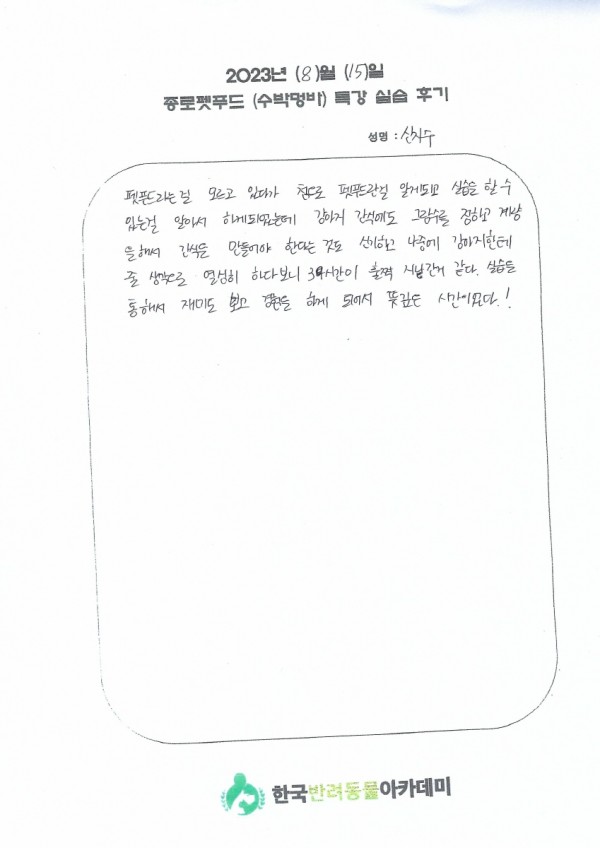 2023년 (8)월 (15)일
종로펫푸드 (수박멍바) 특강 실습 후기
성명 : 신지수
펫푸드라는걸 모르고 있다가 펫푸드란걸 알게되고 실습을 할 수
있는걸 알아서 하게되었는데 강아지 간식에도 그람수를 정하고 계량
을해서 간식을 만들어야 한다는 것도 신기하고 나중에 강아지한테
줄 생각으로 열심히 하다보니 3시간이 훌쩍 지나간거 같다. 실습을
통해서 재미도 보고 경험을 하게 되어서 뜻깊은 시간이었다.!
한국반려동물아카데미